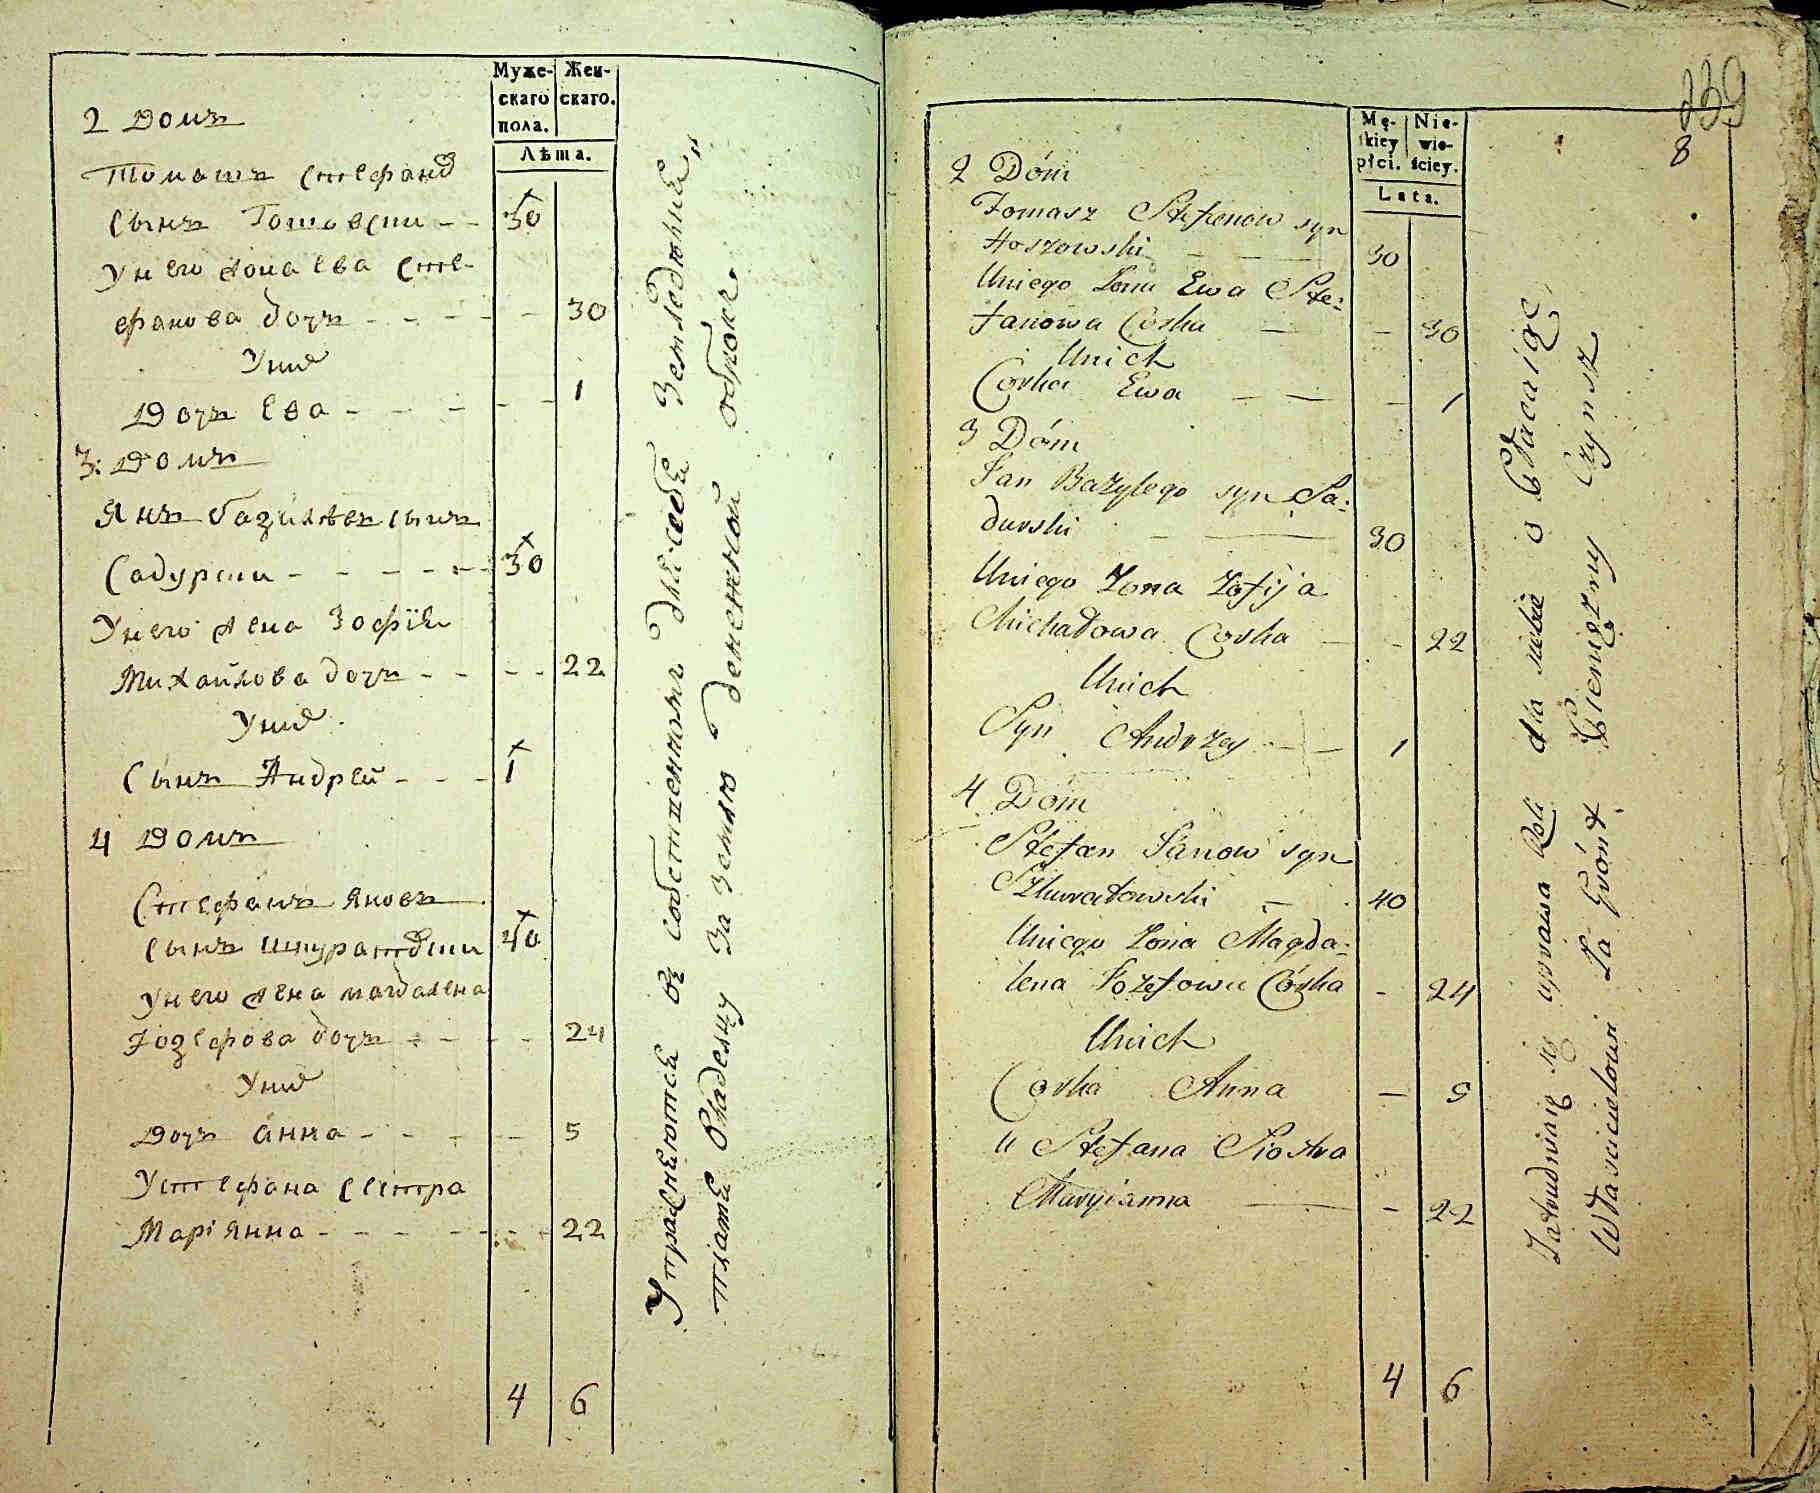 Муже-
скаго
пола.
Жен-
скаго.
Лѣта.
2 Домъ
Томашъ Стефанов
сынъ Гошовски - - 30
У него жона Ева Сте-
фанова дочъ - - - - - 30
У них
Дочъ Ева - - - - - 1
3: Домъ
Янъ Базилѣвъ сынъ
Садурски - - - - - 30
У него жена Зофія
Михайлова дочъ - - - - 22
У них
Сынъ Андрей - - - 1
4 Домъ
Стефанъ Яновъ
сынъ 40
У него жена Магдалена
Іозефова дочъ - - - - 24
У них
Дочъ Анна - - - - - 5
У Стефана сестра
Маріянна - - - - - - 22
4 6
Упражняются въ собственномъ для себя Земледѣліи,
платя Владелцу за землю денежной оброкъ.
139
8
Mę-
skiey
płci.
Nie-
wie-
ściey.
Lata.
2 Dóm
Tomasz Stefanow syn
Hoszowski - - - 30
Uniego Żona Ewa Ste:
fanowa Corka - - 30
Unich
Corka Ewa - - - 1
3 Dóm
Jan Bazylego syn Sa:
durski - - 30
Uniego Żona Zofija
Michałowa Corka - - 22
Unich
Syn Andrzey - - 1
4 Dóm
Stefan Janow syn
Szkuratowski - 40
Uniego Żona Magda:
lena Jozefowa Córka - 24
Unich
Corka Anna - 5
u Stefana Siostra
Maryianna - - 22
4 6
Zatrudnię się uprawa Roli dla siebie opłacaiąc
Włascicielowi za Grónt Pieniężny Czynsz